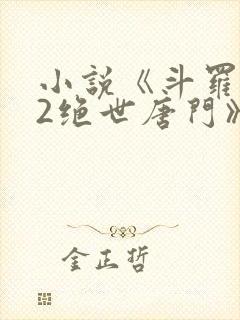 小説《斗羅
2绝世唐門》
金正哲